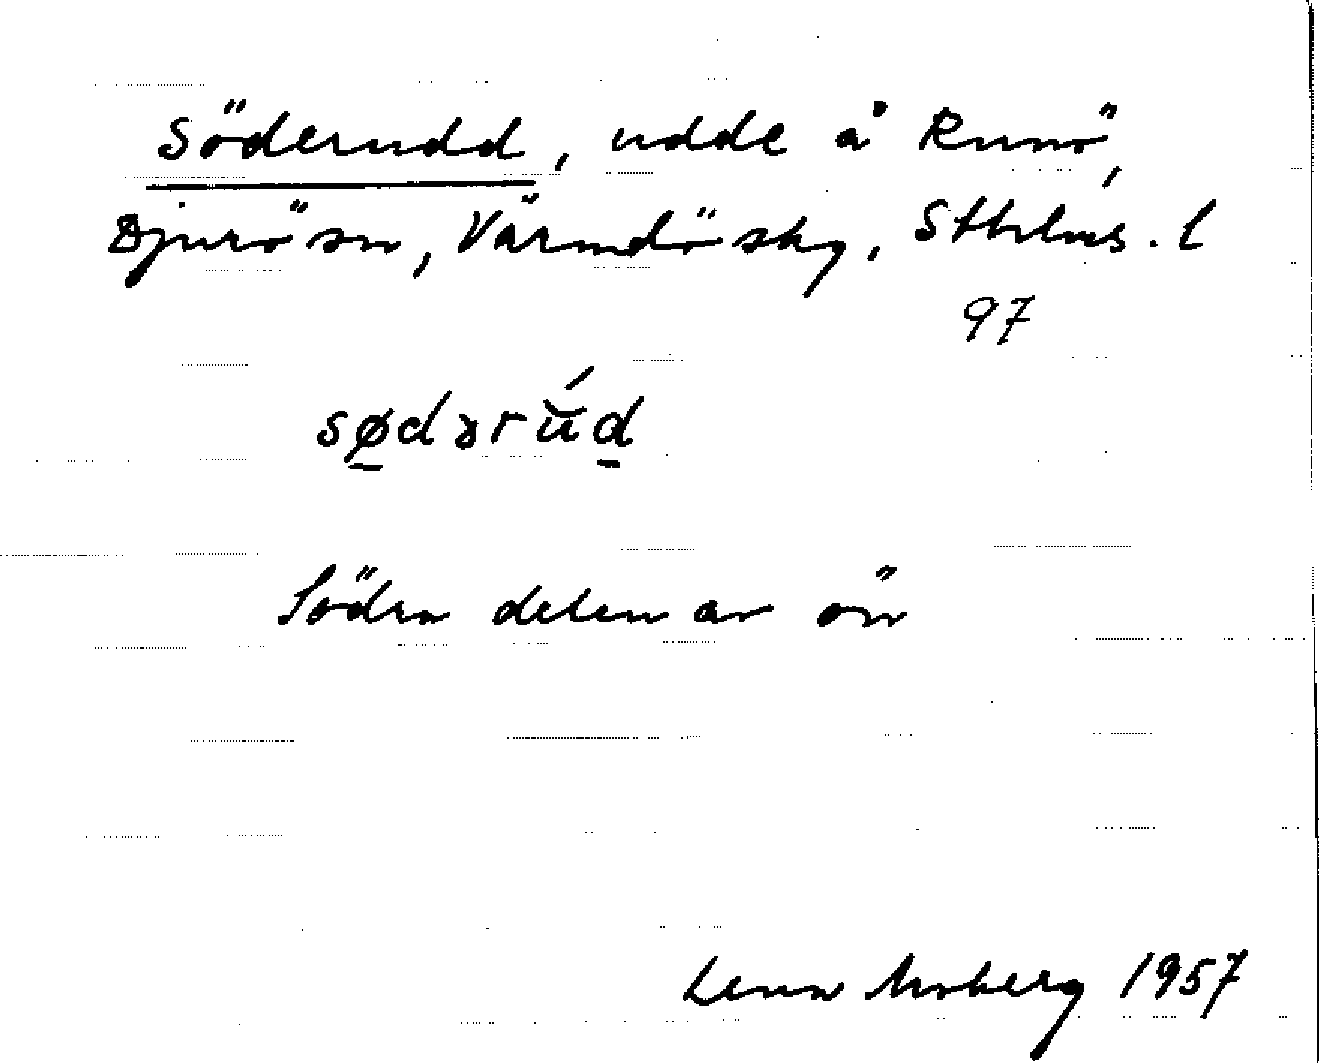 Söderudd, udde å Runö,
Djurö sn, Värmdö skg, Sthlms. l
97
sødərŭ́d
Södra delen av ön
Lena Moberg 1957